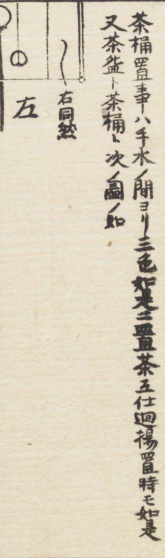 茶桶置事ハ手水ノ間ヨリ三色如是ニ置茶立仕廻復置時モ如是
又茶盌ト茶桶ト次ノ圖ノ如
右同然
左